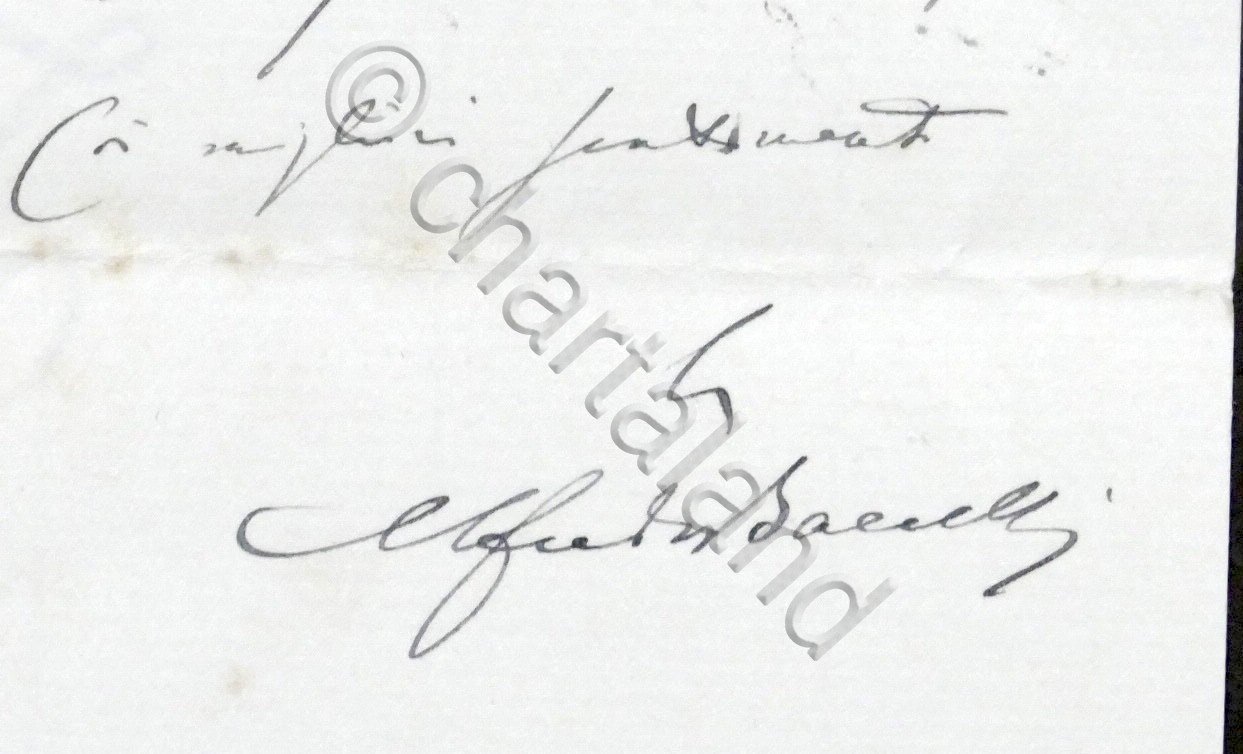 Coi migliori sentimenti
Alfredo Baccelli
© chartaland